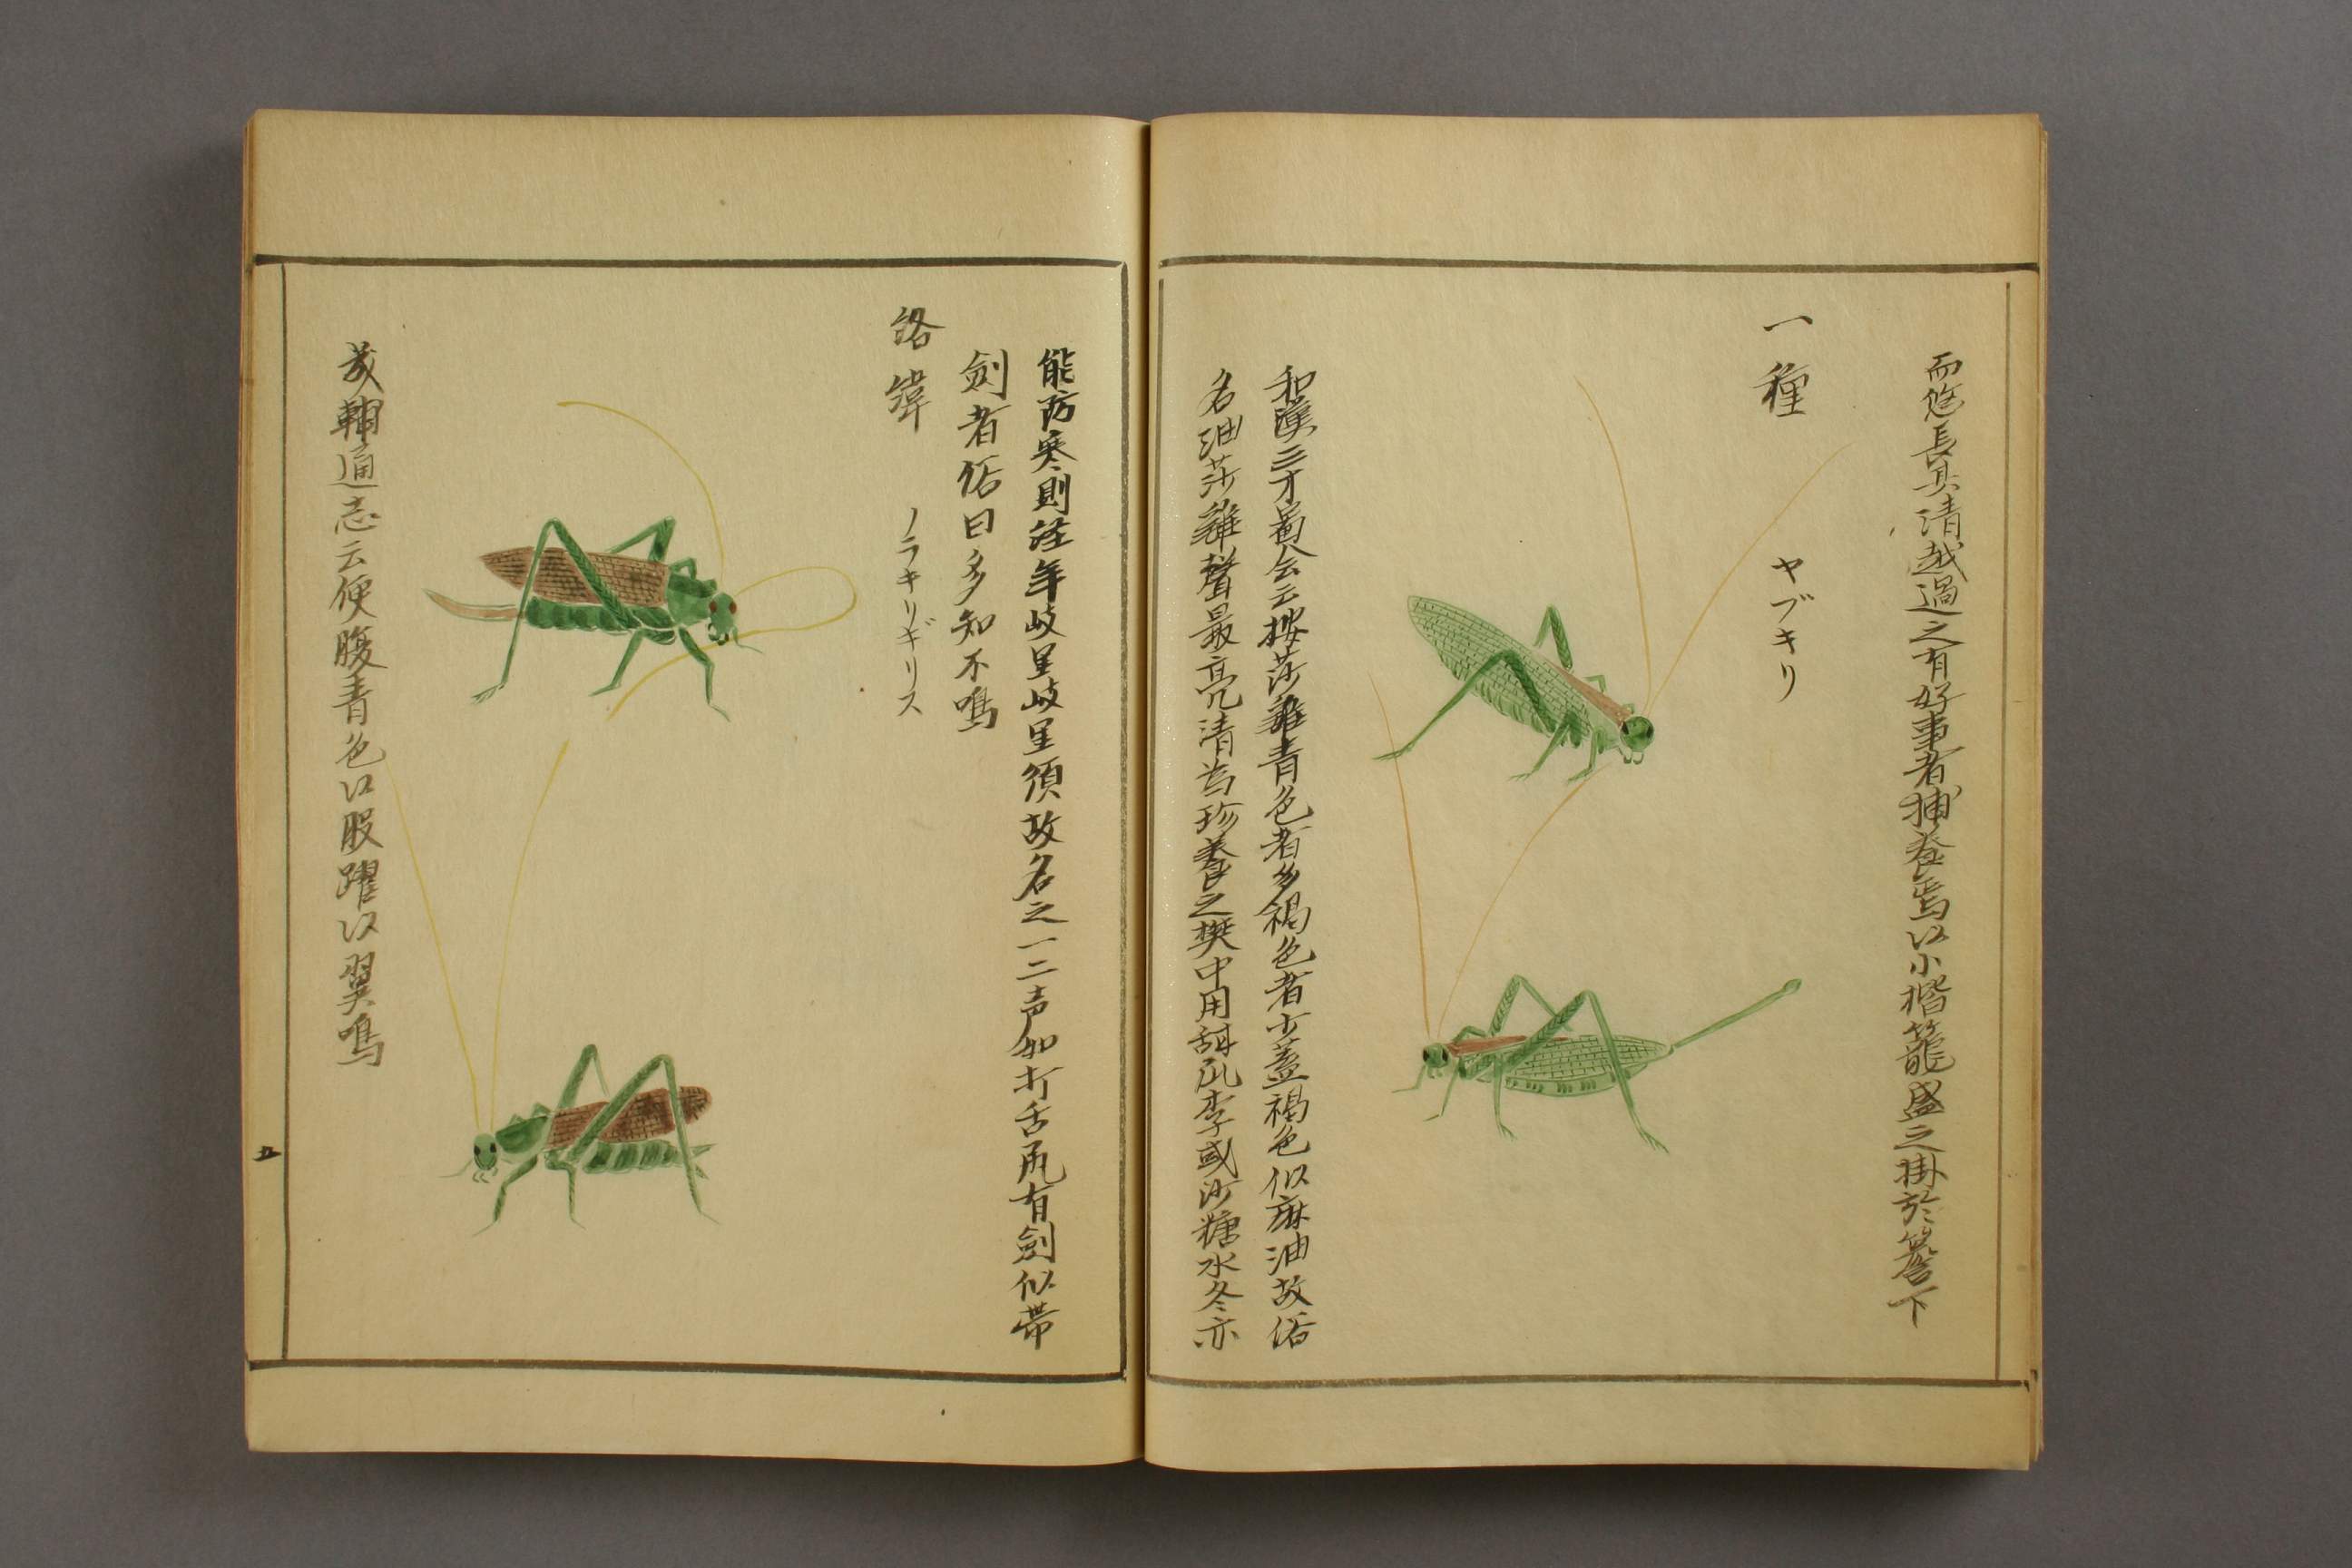 而悠長其清越過之有好事者捕養焉以小楷籠盛之掛於簷下
一種　ヤブキリ
和漢三才圖会云按莎雞青色者多褐色者少蓋褐色似麻油故俗
名油莎雞聲最亮清為珍養之樊中用甜瓜李或沙糖水冬亦
能防寒則経年岐里岐里須故名之一二声如打舌尻有劍似帯
劍者俗曰多知不鳴
絡緯　ノラキリギリス
輔通志云便腹青色以股躍以翼鳴
五